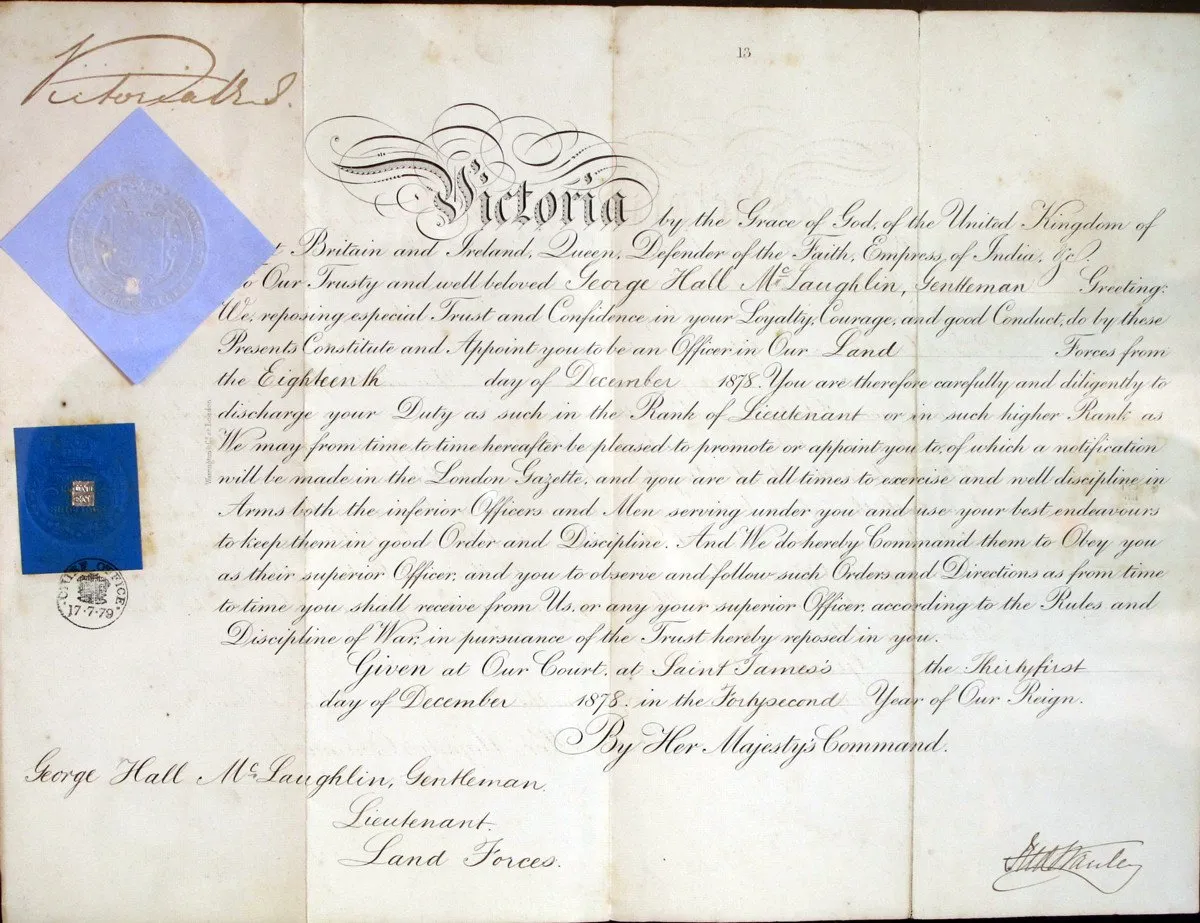 13
Victoria R I.
Victoria by the Grace of God, of the United Kingdom of
Britain and Ireland, Queen, Defender of the Faith, Empress of India, &c.
o Our Trusty and well beloved George Hall McLaughlin, Gentleman Greeting:
We, reposing especial Trust and Confidence in your Loyalty, Courage, and good Conduct, do by these
Presents Constitute and Appoint you to be an Officer in Our Land Forces from
the Eighteenth day of December 1878. You are therefore carefully and diligently to
discharge your Duty as such in the Rank of Lieutenant or in such higher Rank as
We may from time to time hereafter be pleased to promote or appoint you to, of which a notification
will be made in the London Gazette, and you are at all times to exercise and well discipline in
Arms both the inferior Officers and Men serving under you and use your best endeavours
to keep them in good Order and Discipline. And We do hereby Command them to Obey you
as their superior Officer, and you to observe and follow such Orders and Directions as from time
to time you shall receive from Us, or any your superior Officer, according to the Rules and
Discipline of War, in pursuance of the Trust hereby reposed in you.
Given at Our Court, at Saint James's the Thirtyfirst
day of December 1878. in the Fortysecond Year of Our Reign.
By Her Majesty's Command.
George Hall McLaughlin, Gentleman.
Lieutenant.
Land Forces.
OFFICE
17-7-79
Stanley